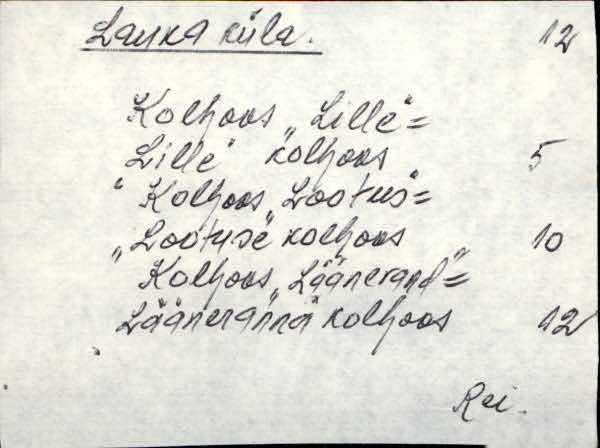 Lauka küla. 12
Kolhoos „Lille“=
Lille“ kolhoos 5
"Kolhoos „Lootus“=
„Lootuse kolhoos 10
Kolhoos „Läänerand“=
Lääneranna kolhoos 12
Rei.